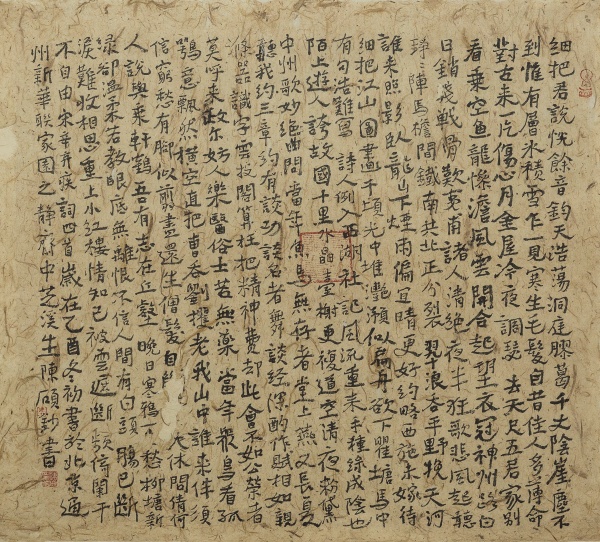 細把君說恍餘音鈞天浩蕩洞庭膠葛千丈陰崖塵不
到惟有層冰積雪乍一見寒生毛髮自昔佳人多薄命
對古來一片傷心月金屋冷夜調瑟 去天尺五君家別
看乘空魚龍慘澹風雲開合起望衣冠神州路白
日銷殘戰骨歎夷甫諸人清絕夜半狂歌悲風起聽
錚錚陣馬檐間鐵南共北正分裂 翠浪吞平野挽天河
誰來照影臥龍山下煙雨偏宜晴更好約略西施未嫁待
細把江山圖畫千頃光中堆灩澦似扁舟欲下瞿塘馬中
有句浩難寫 詩人例入西湖社記風流重來手種綠成陰也
陌上遊人誇故國十里水晶臺榭更複道空清夜粉黛
中州歌妙絕曲問當年魚鳥無存者堂上燕又長夏
聽我約三章約有談功談名者舞談經深酌作賦相如親
滌器識字雲投閣算枉把精神費卻此會不如公榮者
莫呼來政爾妨人樂醫俗士苦無藥 當年眾鳥看孤
鶚意飄然橫空直把曹吞劉攫老我山中誰來伴須
信窮愁有腳似剪盡還生僧髮自 天休問倩何
人說與乘軒鶴吾有志在丘壑 晚日寒鴉一 愁柳塘新
綠卻溫柔若教眼底無離恨不信人間有白頭 腸已斷
淚難收相思重上小紅樓情知已被雲遮斷頻倚闌干
不自由宋辛棄疾詞四首歲在乙酉冬初書於北京通
州新華聯家園之靜齋中芝溪生陳碩 書